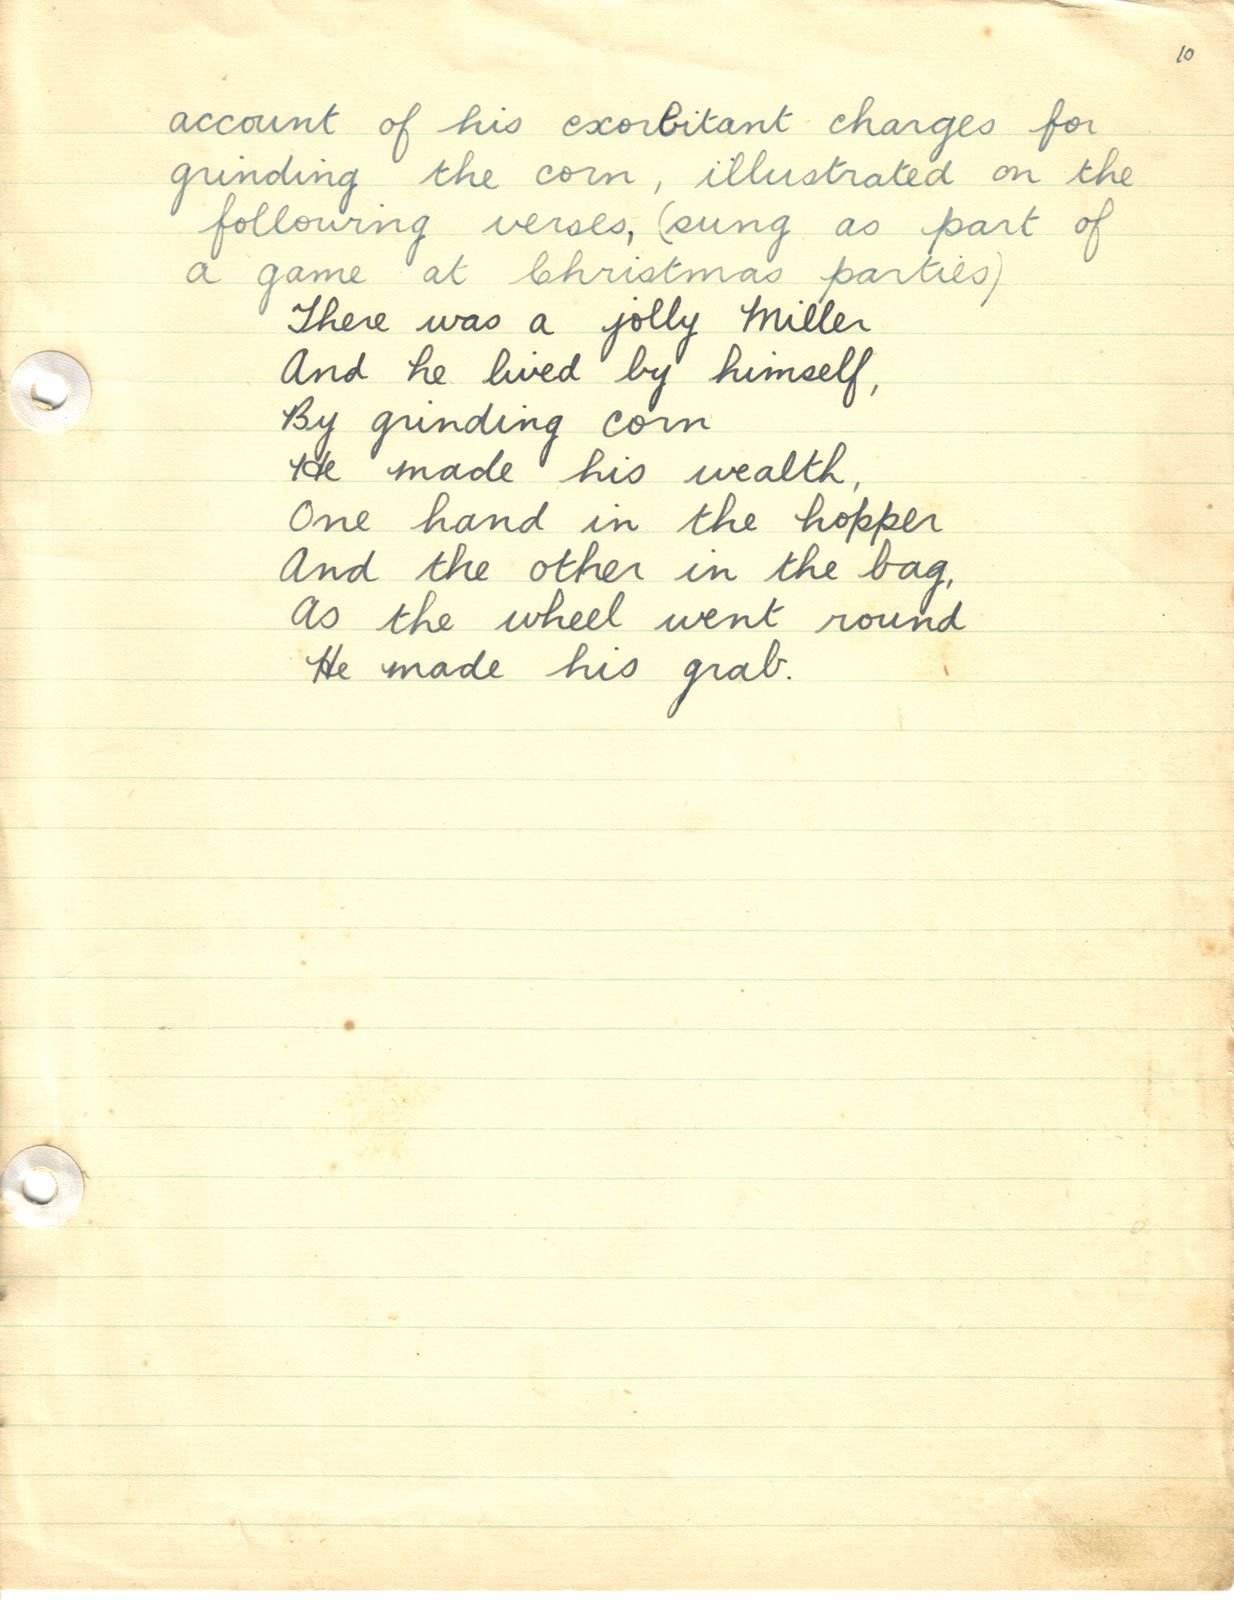 10
account of his exorbitant charges for
grinding the corn, illustrated on the
following verses, (sung as part of
a game at Christmas parties)
There was a jolly Miller
And he lived by himself,
By grinding corn
He made his wealth,
One hand in the hopper
And the other in the bag,
As the wheel went round
He made his grab.